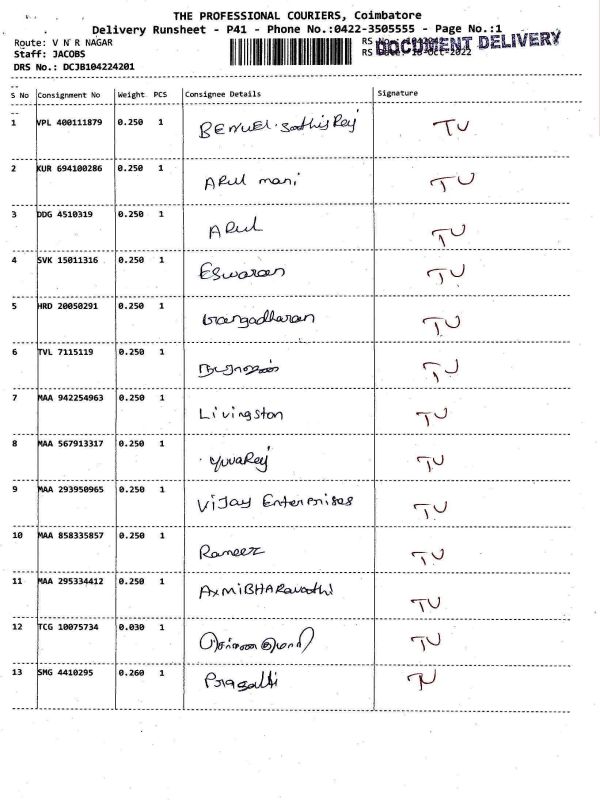 THE PROFESSIONAL COURIERS, Coimbatore
Delivery Runsheet - P41 - Phone No.:0422-3505555 - Page No.:1
Route: V N R NAGAR
Staff: JACOBS
DRS No.: DCJB104224201
DOCUMENT DELIVERY
S No Consignment No Weight PCS Consignee Details Signature
1 VPL 400111879 0.250 1 TU
2 KUR 694100286 0.250 1 ARUL mani TU
3 DDG 4510319 0.250 1 ARUL TU
4 SVK 15011316 0.250 1 Eswaran TU
5 HRD 20050291 0.250 1 Gangadharan TU
6 TVL 7115119 0.250 1 TU
7 MAA 942254963 0.250 1 Livingston TU
8 MAA 567913317 0.250 1 yuvaRaj TU
9 MAA 293950965 0.250 1 ViJay Enterprises TU
10 MAA 858335857 0.250 1 Rameez TU
11 MAA 295334412 0.250 1 TU
12 TCG 10075734 0.030 1 TU
13 SMG 4410295 0.260 1 TU